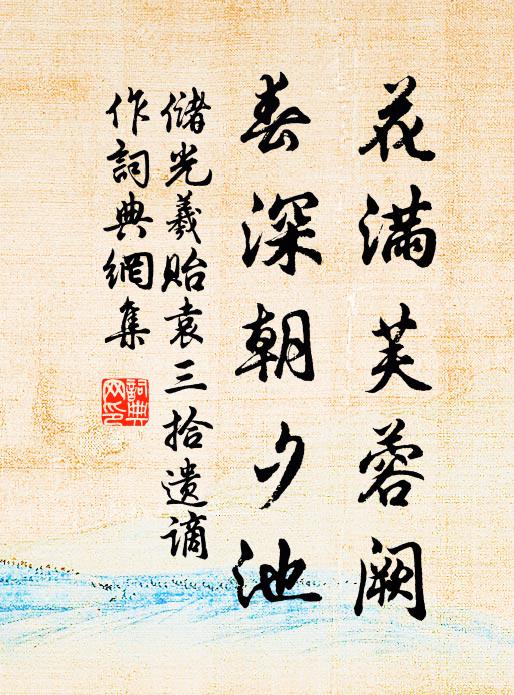 花滿芙蓉闕
春深朝夕池
儲光羲貽袁三拾遺謫
作詞典網集
詞典
网印